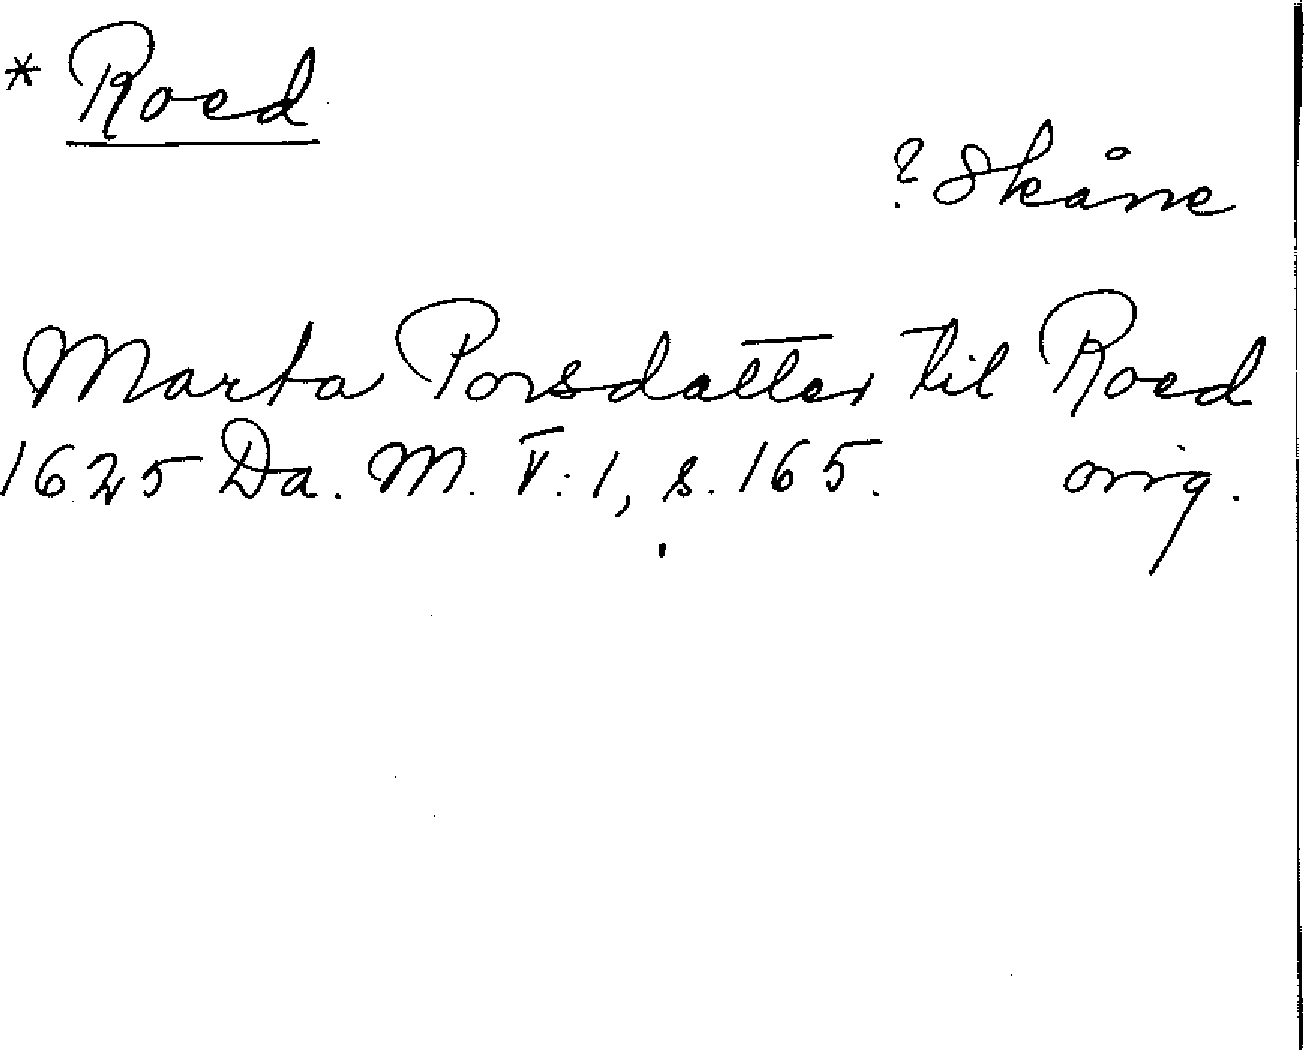 * Roed
? Skåne
Marta Porsdatter til Roed
1625 Da. M. V: 1, s. 165. orig.